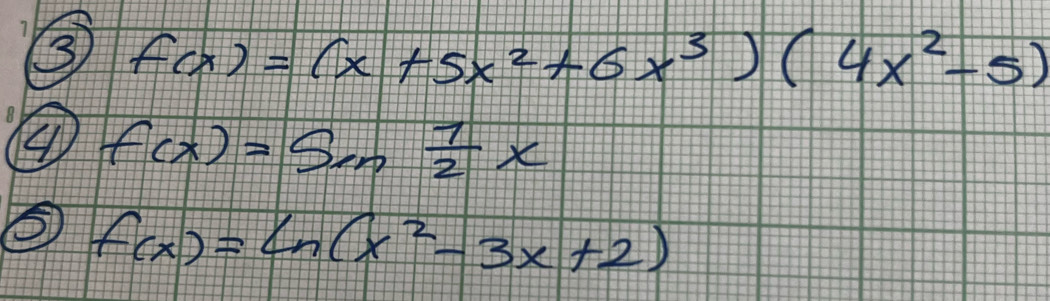 7
③ f(x) = (x + 5x² + 6x³) (4x² - 5)
8
④ f(x) = Sen 1/2 x
⑤ f(x) = Ln(x² - 3x + 2)